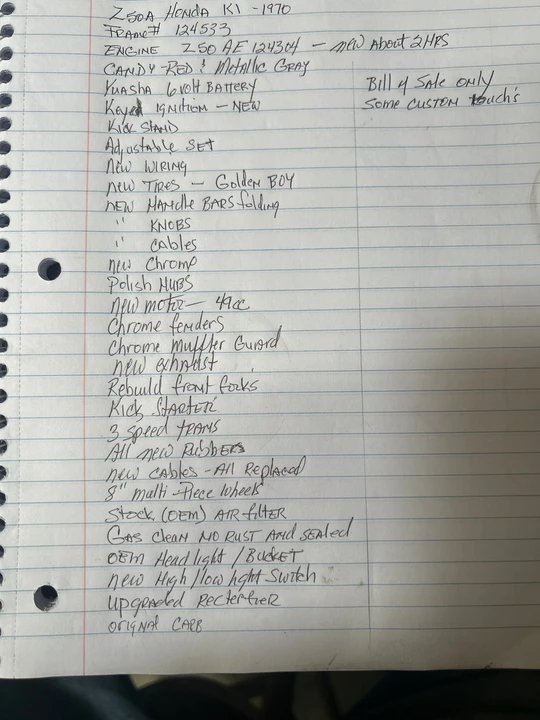 Z50A HONDA K1 - 1970
Frame# 124533
ENGINE Z50 AE 124304 - new About 2HPS
CANDY RED & Metallic GRAY
Yuasha 6 volt BATTERY
Bill of Sale ONLY
Keyed IGNITION - NEW
Some CUSTOM touch's
Kick STAND
Adjustable SET
New WIRING
new TIRES - Golden BOY
NEW HANdle BARS folding
" KNOBS
" CAbles
new Chrome
Polish HUBS
new motor - 49cc
Chrome fenders
Chrome Muffler Guard
new exhaust
Rebuild front forks
Kick STARTER
3 speed TRANS
All new Rubbers
new CABles - All Replaced
8" multi-Piece Wheels
Stock (OEM) AIR filter
Gas Clean NO RUST AND SEAled
OEM Head light / BUCKET
new High/low light Switch
Upgraded Rectefier
orignal CARB